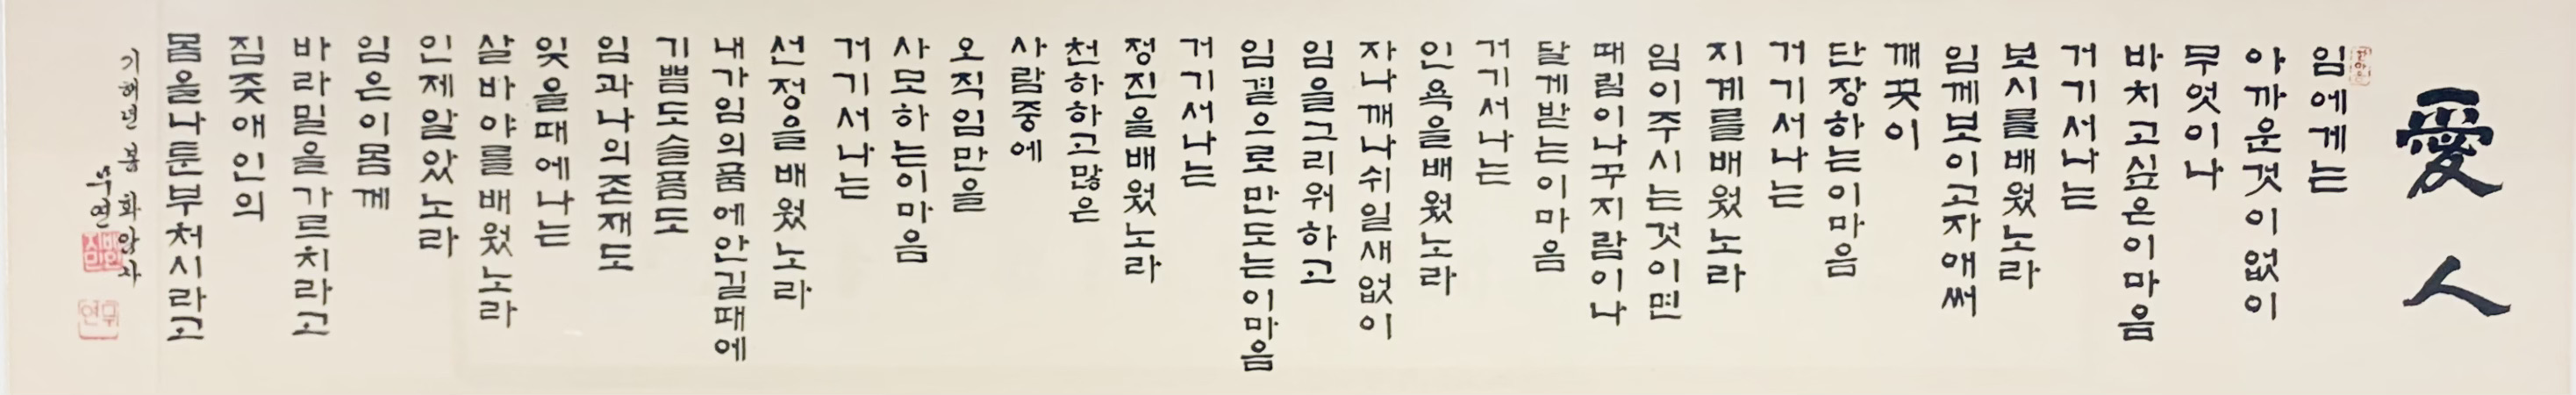 愛人
임에게는
아까운것이없이
무엇이나
바치고싶은이마음
거기서나는
보시를배웠노라
임께보이고자애써
깨끗이
단장하는이마음
거기서나는
지계를배웠노라
임이주시는것이면
때림이나꾸지람이나
달게받는이마음
거기서나는
인욕을배웠노라
자나깨나쉬일새없이
임을그리워하고
임곁으로만도는이마음
거기서나는
정진을배웠노라
천하하고많은
사람중에
오직임만을
사모하는이마음
거기서나는
선정을배웠노라
내가임의품에안길때에
기쁨도슬픔도
임과나의존재도
잊을때에나는
살바야를배웠노라
인제알았노라
임은이몸께
바라밀을가르치라고
짐즛애인의
몸을나툰부처시라고
기해년 봄
무연
무연